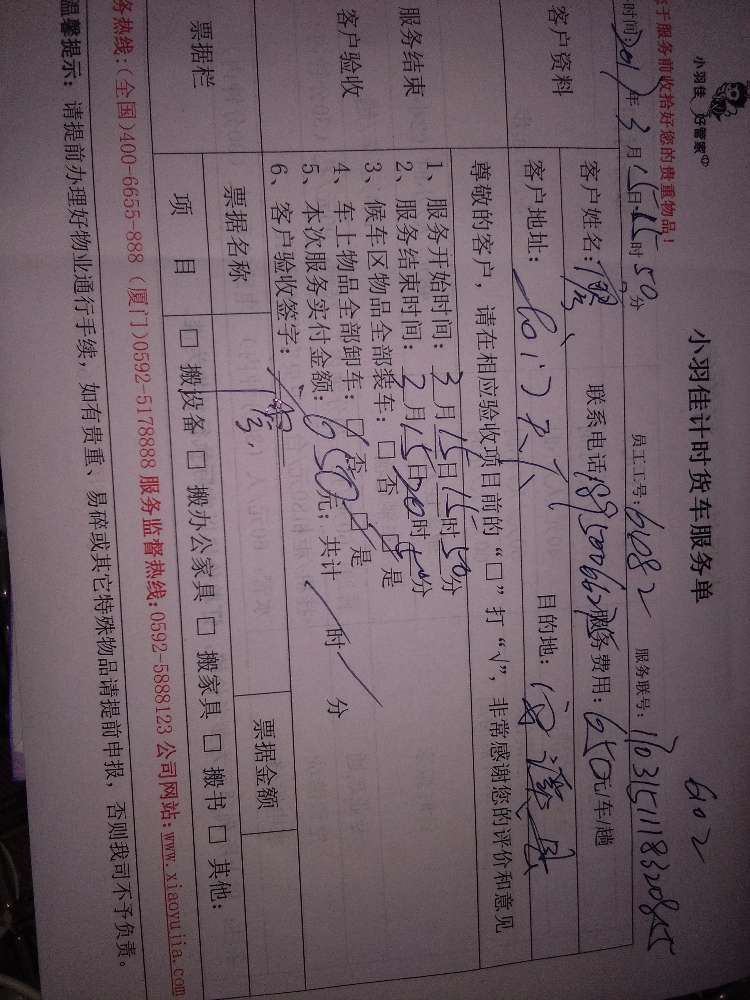 小羽佳 好管家
小羽佳计时货车服务单
602
于服务前收拾好您的贵重物品！
员工工号：6082 服务联号：170315111832085
时间：2017年3月15日15时50分
客户资料
客户姓名： 联系电话： 服务费用：650元/车/趟
客户地址： 目的地：
尊敬的客户，请在相应验收项目前的“□”打“√”，非常感谢您的评价和意见
服务结束
客户验收
1、服务开始时间：3月15日15时50分
2、服务结束时间：
3、候车区物品全部装车：□否 □是
4、车上物品全部卸车：□否 □是
5、本次服务实付金额：650元；共计 时 分
6、客户验收签字：
票据栏
票据名称 票据金额
项目 □搬设备 □搬办公家具 □搬家具 □搬书 □其他：
务热线：(全国)400-6655-888 (厦门)0592-5178888 服务监督热线：0592-5888123 公司网站：www.xiaoyujia.com
温馨提示：请提前办理好物业通行手续，如有贵重、易碎或其它特殊物品请提前申报，否则我司不予负责。